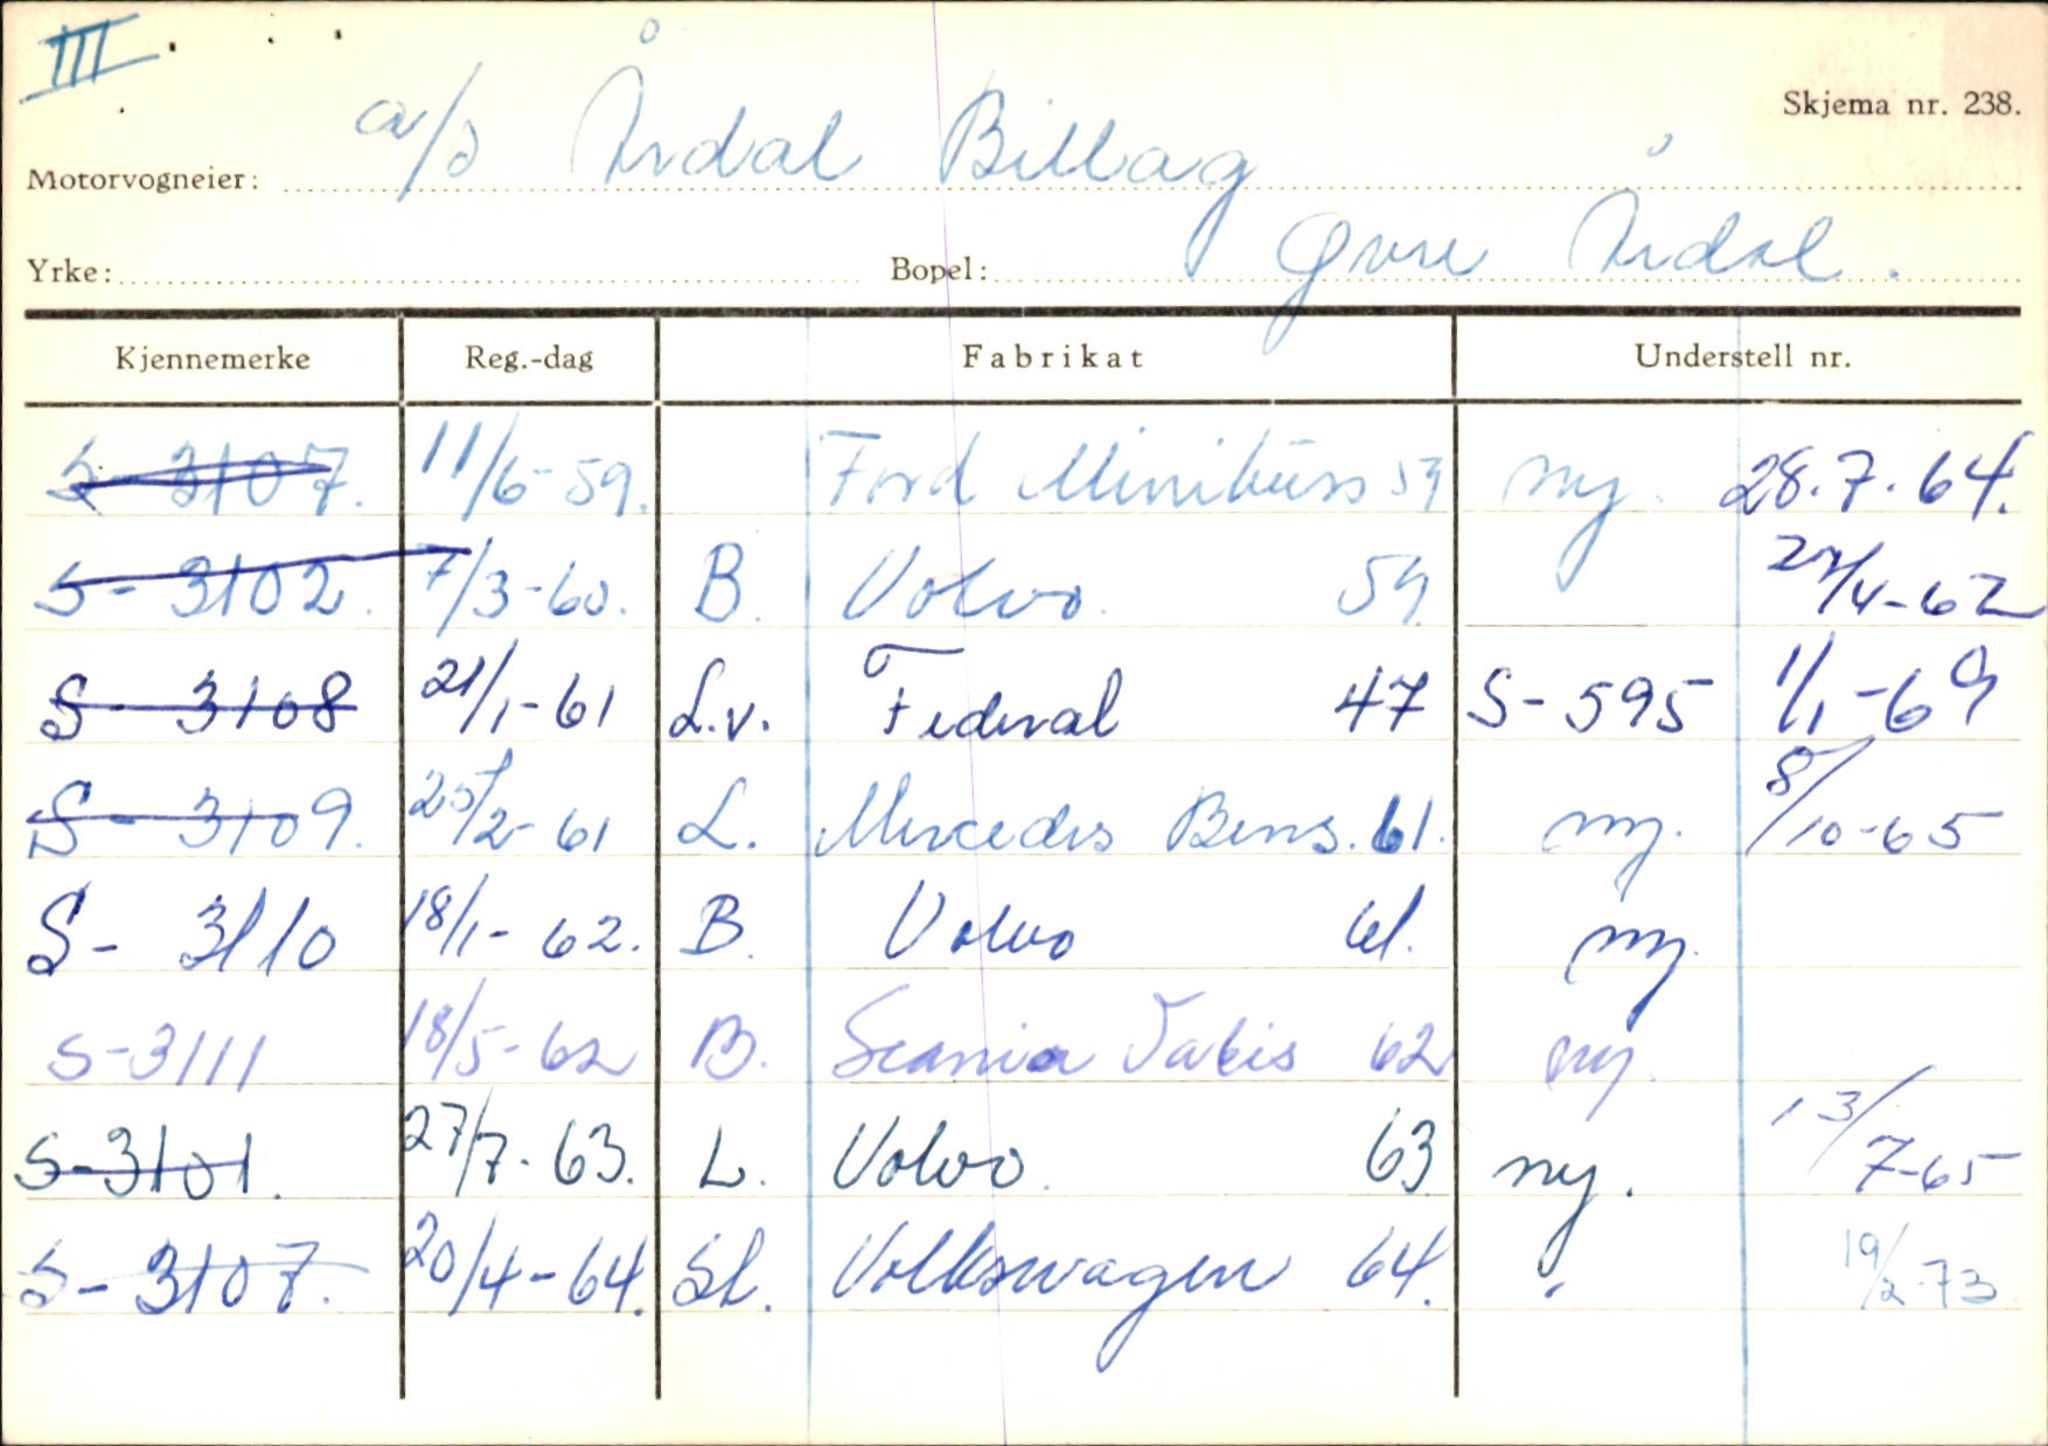 III
Skjema nr. 238.
Motorvogneier: a/s Årdal Billag
Yrke: Bopel: Øvre Årdal.
Kjennemerke Reg.-dag Fabrikat Understell nr.
S-3107. 11/6-59. Ford Minibuss 59 ny. 28.7.64.
S-3102. 7/3-60. B. Volvo. 59 27/4-62
S-3108 21/1-61 L.v. Federal 47 S-595 1/1-69
S-3109. 25/2-61 L. Mercedes Bens. 61. ny. 8/10-65
S-3110 18/1-62. B. Volvo 61. ny.
S-3111 18/5-62 B. Scania Vabis 62 ny.
S-3101. 27/7-63. L. Volvo. 63 ny. 13/7-65
S-3107. 20/4-64. St. Volkswagen 64. " 19/2-73